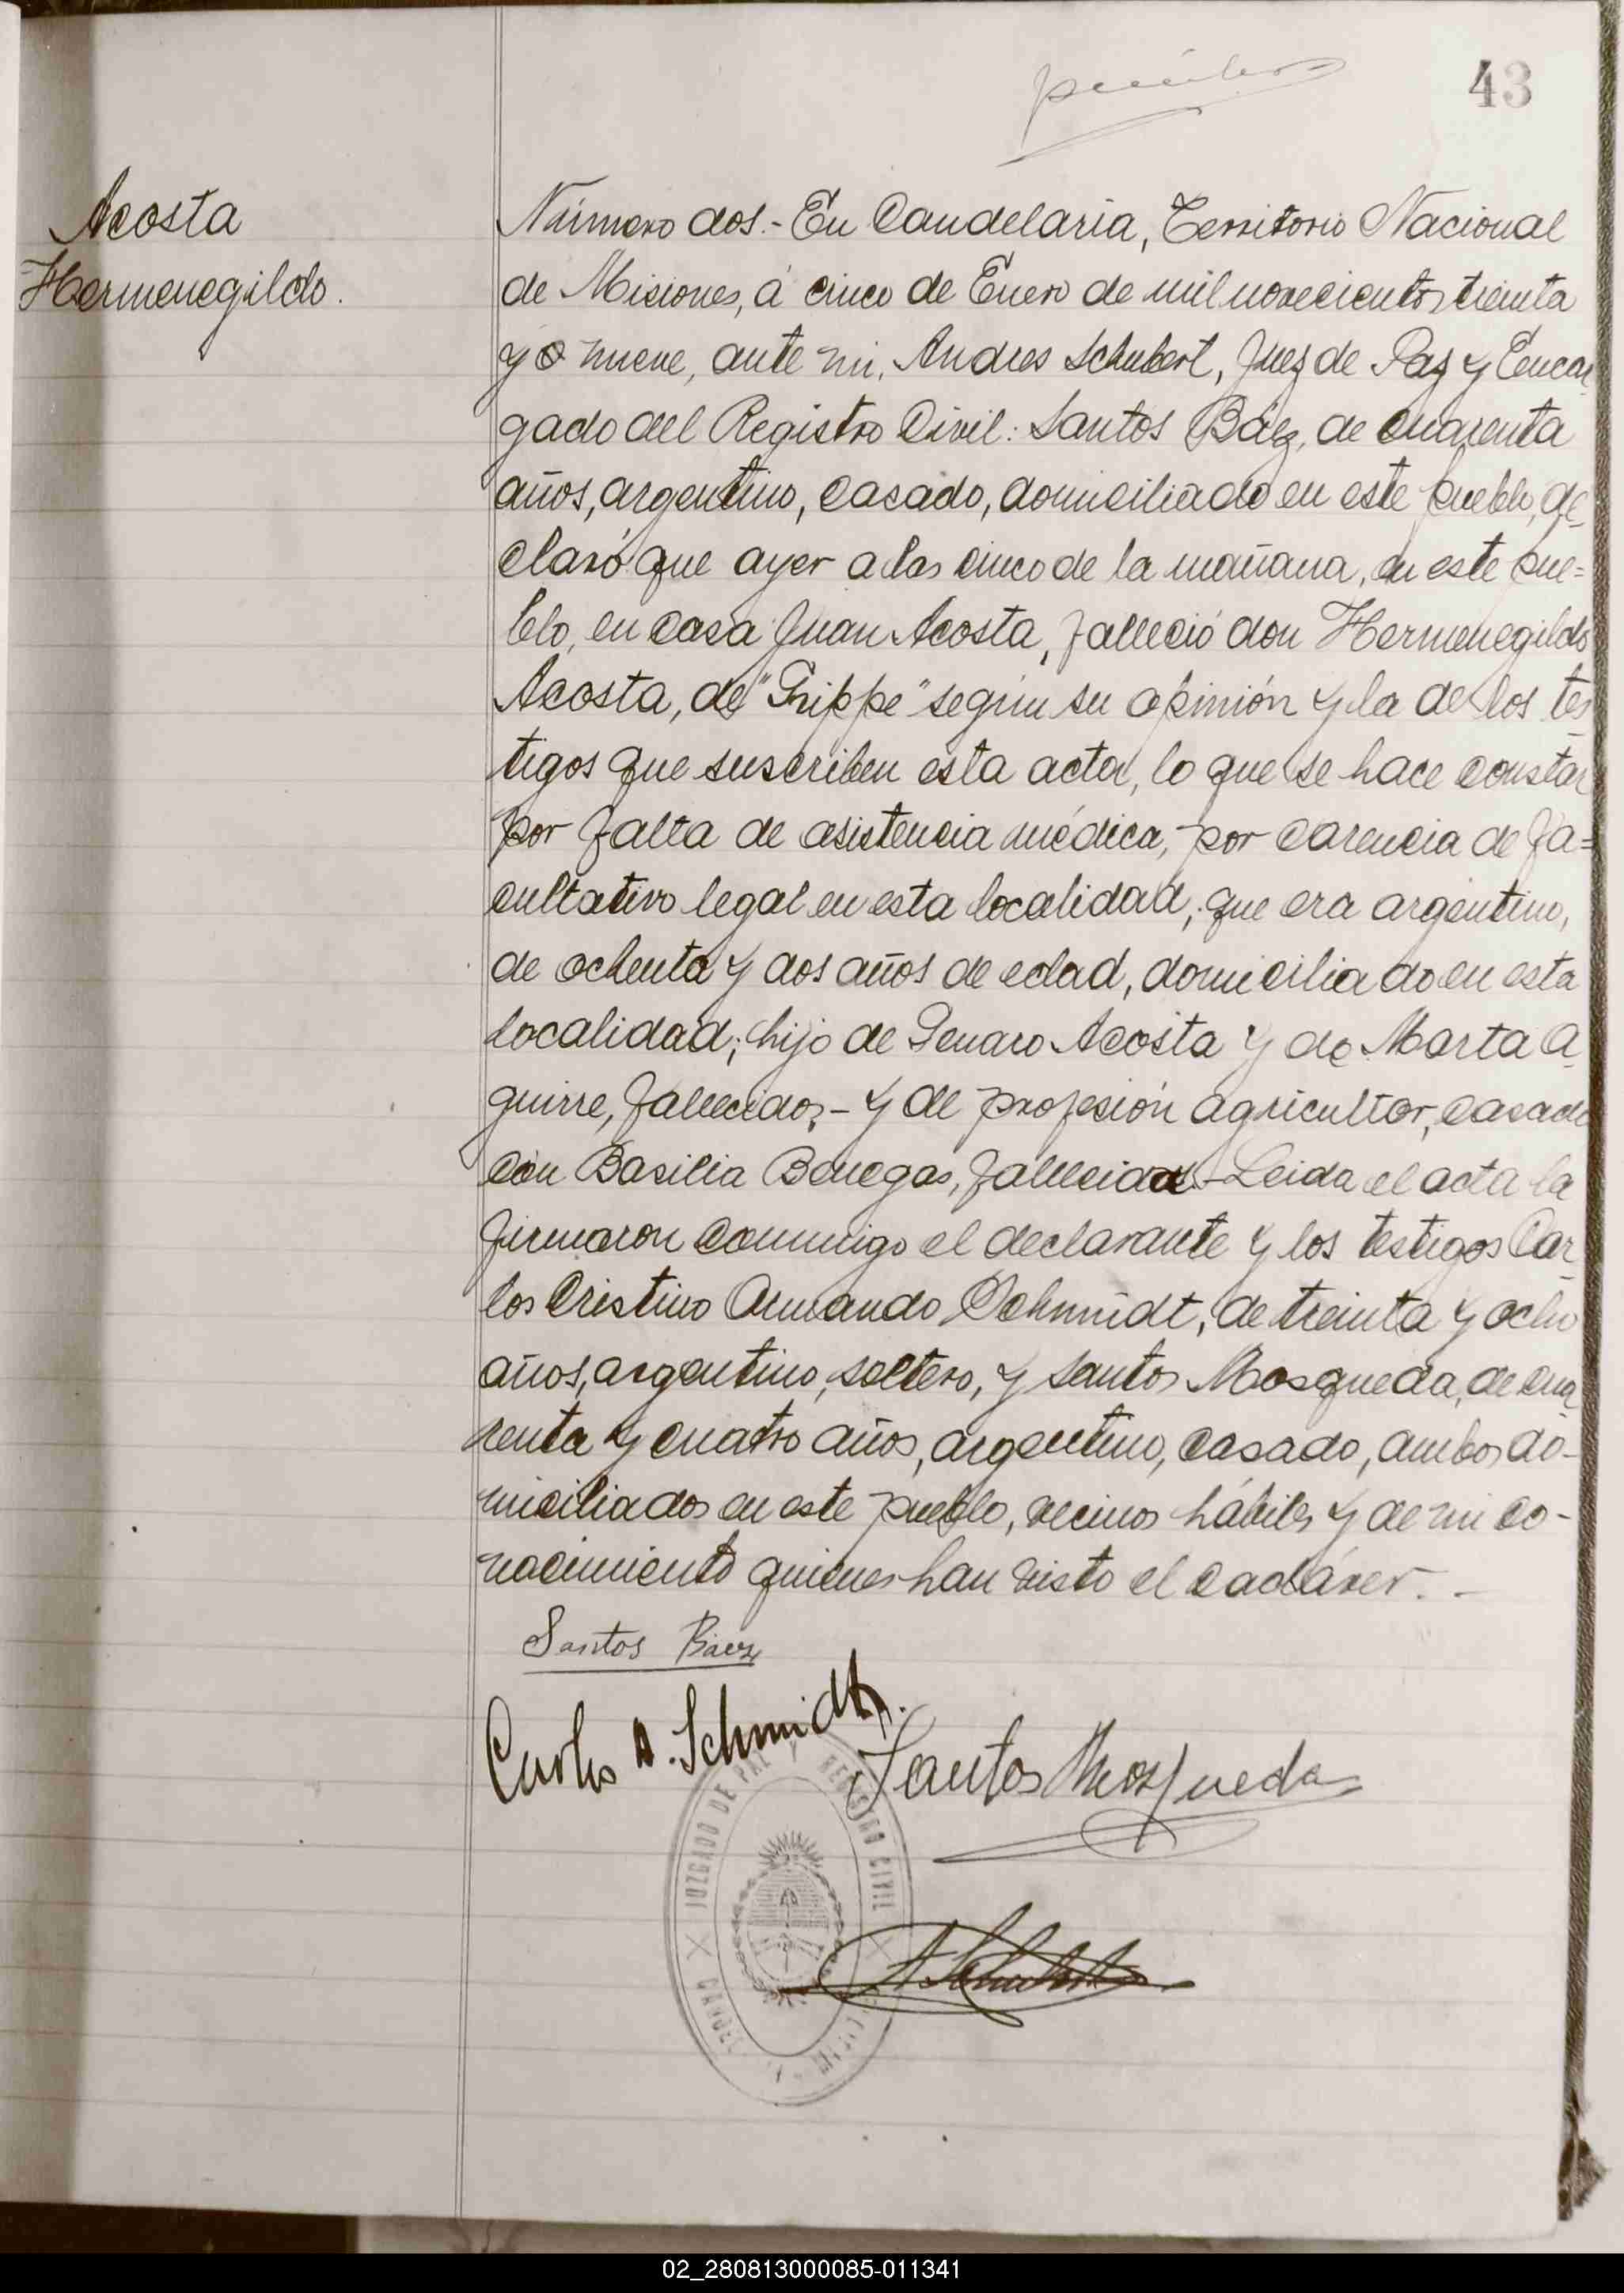 43
Acosta
Hermenegildo.
Número dos.- En Candelaria, Territorio Nacional
de Misiones, á cinco de Enero de mil novecientos treinta
y nueve, ante mi, Andres Schubert, Juez de Paz y Encar
gado del Registro Civil: Santos Báez, de cuarenta
años, argentino, casado, domiciliado en este pueblo, de-
claró que ayer a las cinco de la mañana, en este pue=
blo, en casa Juan Acosta, falleció don Hermenegildo
Acosta, de "Grippe" según su opinión y la de los tes-
tigos que suscriben esta acta, lo que se hace constar
por falta de asistencia médica, por carencia de fa=
cultativo legal en esta localidad; que era argentino,
de ochenta y dos años de edad, domiciliado en esta
localidad; hijo de Genaro Acosta y de Marta A-
guirre, fallecidos,- y de profesión agricultor, casado
con Basilia Benegas, fallecida.- Leida el acta la
firmaron conmigo el declarante y los testigos Car-
los Cristino Armando Schmidt, de treinta y ocho
años, argentino, soltero, y Santos Mosqueda, de cua
renta y cuatro años, argentino, casado, ambos do-
miciliados en este pueblo, vecinos hábiles y de mi co-
nocimiento quienes han visto el cadáver. -
Santos Báez
Carlos A. Schmidt.
Santos Mosqueda
JUZGADO DE PAZ Y REGISTRO CIVIL
A Schubert
02_280813000085-011341